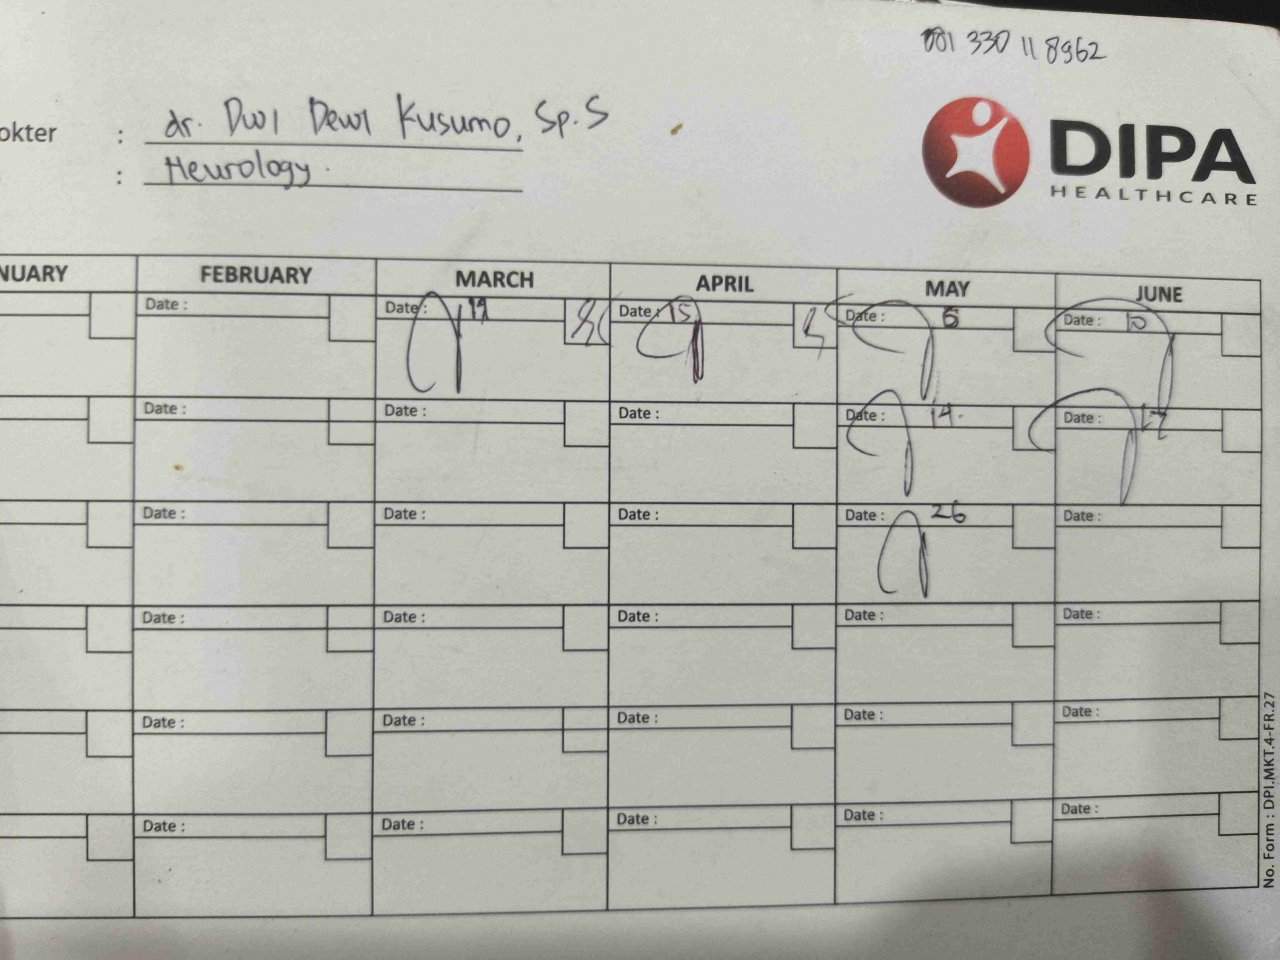 081 330 11 8962
okter : dr. Dwi Dewi Kusumo, Sp.S
: Neurology.
DIPA
HEALTHCARE
NUARY FEBRUARY MARCH APRIL MAY JUNE
Date : Date : Date : 15 Date : 6 Date : 10
Date : Date : Date : Date : 14. Date : 17
Date : Date : Date : Date : 26 Date :
Date : Date : Date : Date : Date :
Date : Date : Date : Date : Date :
Date : Date : Date : Date : Date :
No. Form : DPI.MKT.4-FR.27